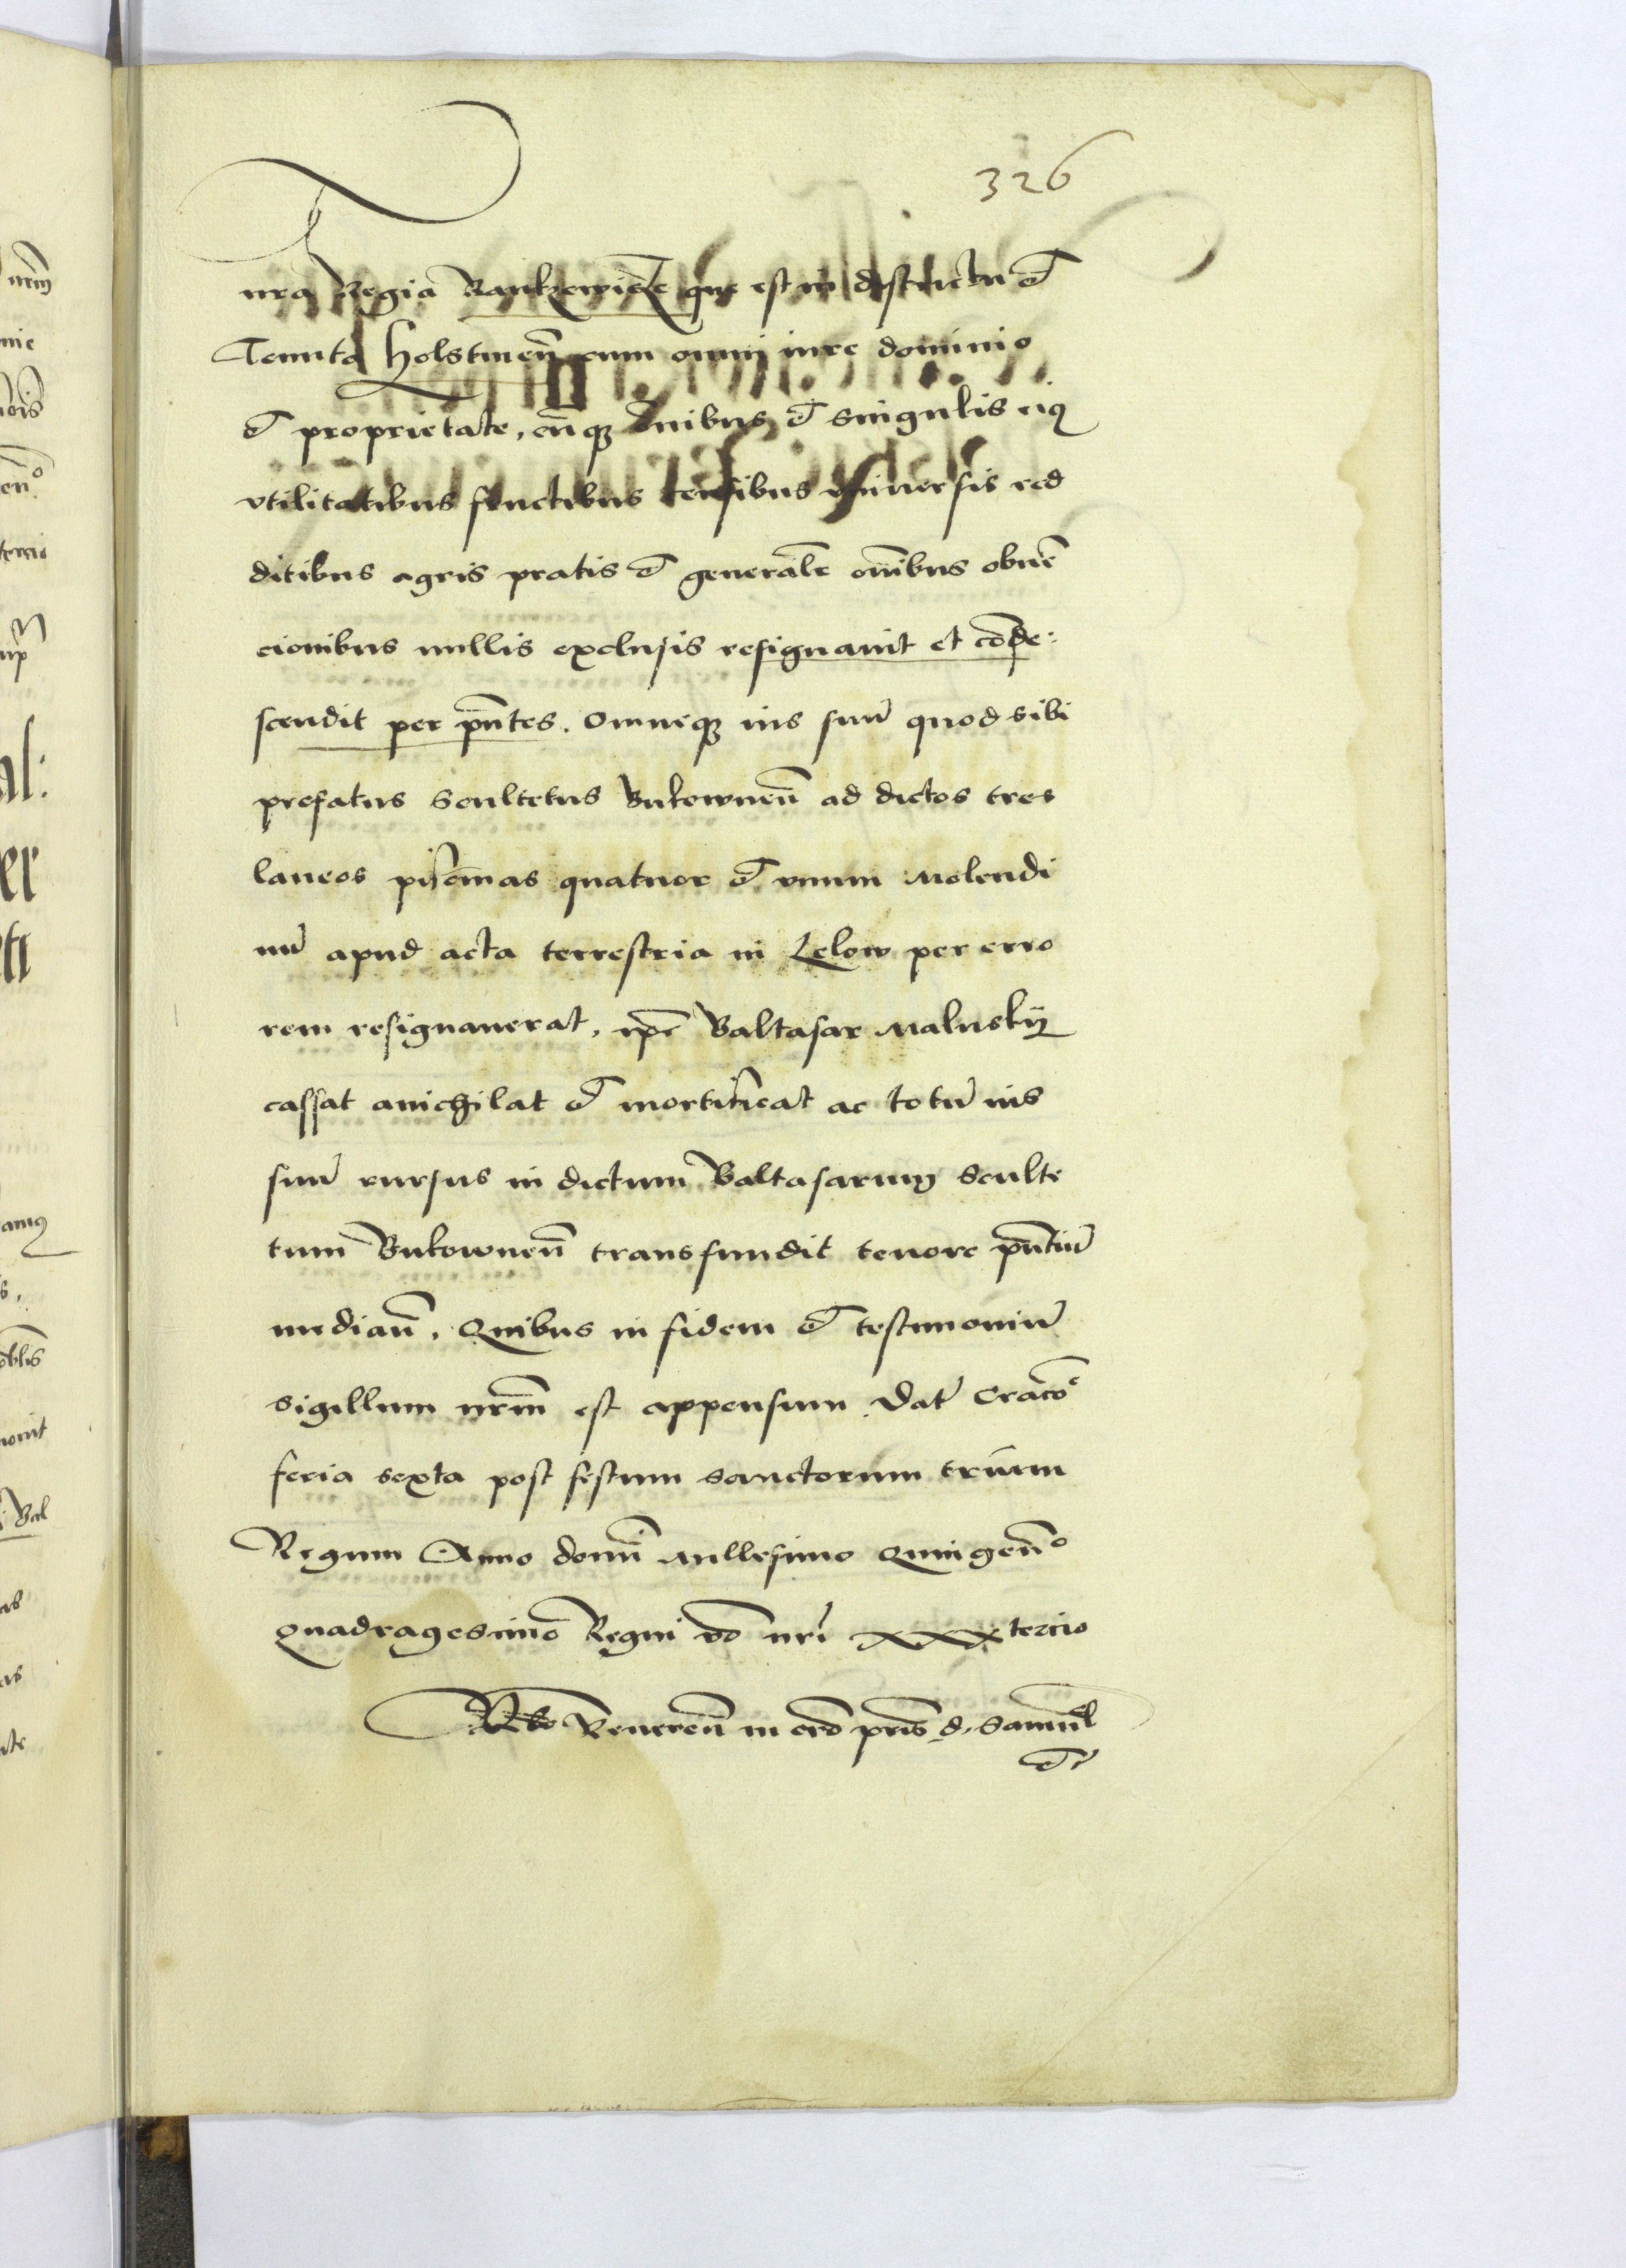 326
nra Regia Rankowicze que est in districtu et
Tenuta holstinen cum omni iure dominio
et proprietate, cuqz omnibus et singulis eiq
vtilitatibus fructibus censibus vniuersis red
ditibus agris pratis et generale omibus obue
cionibus nullis exclusis resignauit et code:
scendit per pntes. Omneqz ius suu quod sibi
prefatus scultetus Bukownen ad dictos tres
laneos piscinas quatuor et vnum Molendi
nu apud acta terrestria in Lelow per erro
rem resignauerat, ipe Baltasar Maluskij
cassat anichilat et mortificat ac totu ius
suu rursus in dictum Baltasarum Sculte
tum Bukownen transfundit tenore pntiu
median. Quibus in fidem et testimoniu
sigillum nrm est appensum. Dat Craco
feria sexta post festum sanctorum trium
Regum Anno domi Millesimo Quingeno
quadragesimo Regni vo nri xxx tercio
Rlo Reueren in cro pris d. Samuel